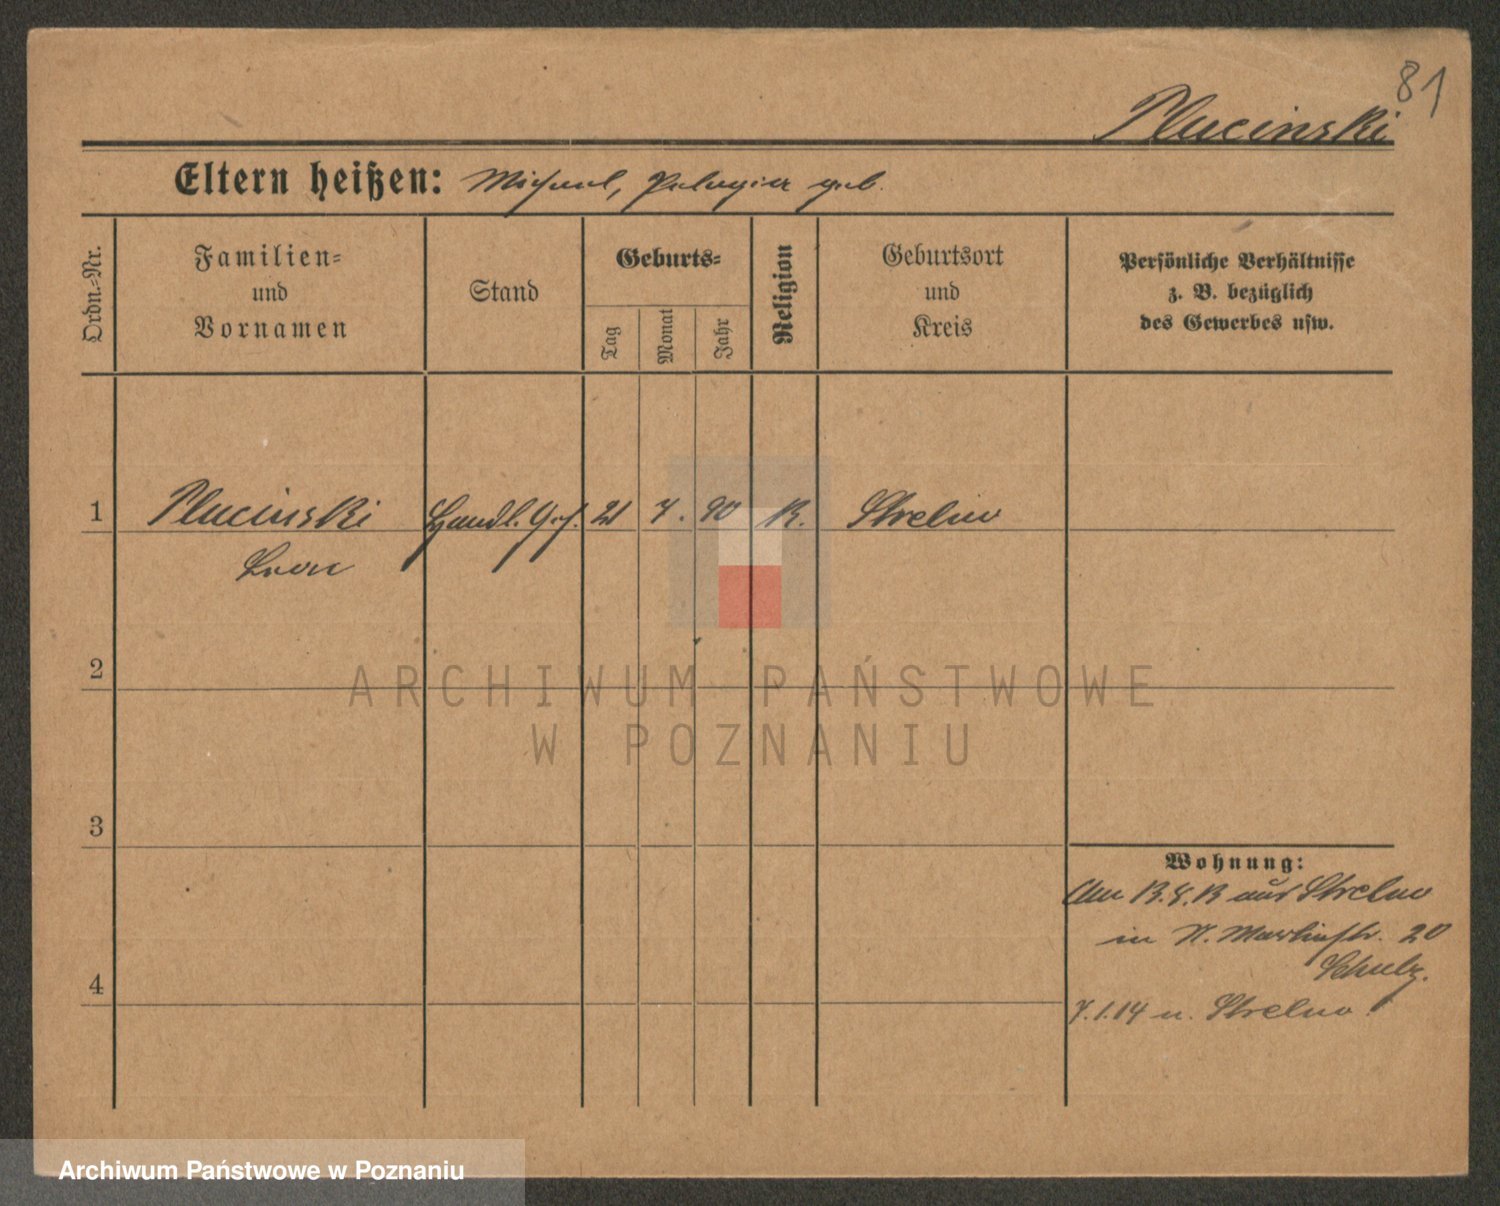 81
Plucinski
Eltern heißen: Michael, Pelagia geb.
Ordn.-Nr.
Familien-
und
Vornamen
Stand
Geburts-
Tag
Monat
Jahr
Religion
Geburtsort
und
Kreis
Persönliche Verhältnisse
z. B. bezüglich
des Gewerbes usw.
1 Plucinski Handl. Geh. 21 7. 90 K. Strelno
Leon
2
3
4
Wohnung:
aus Strelno
in St. Martinstr. 20
Schulz.
7.1.14 n. Strelno
ARCHIWUM PAŃSTWOWE
W POZNANIU
Archiwum Państwowe w Poznaniu